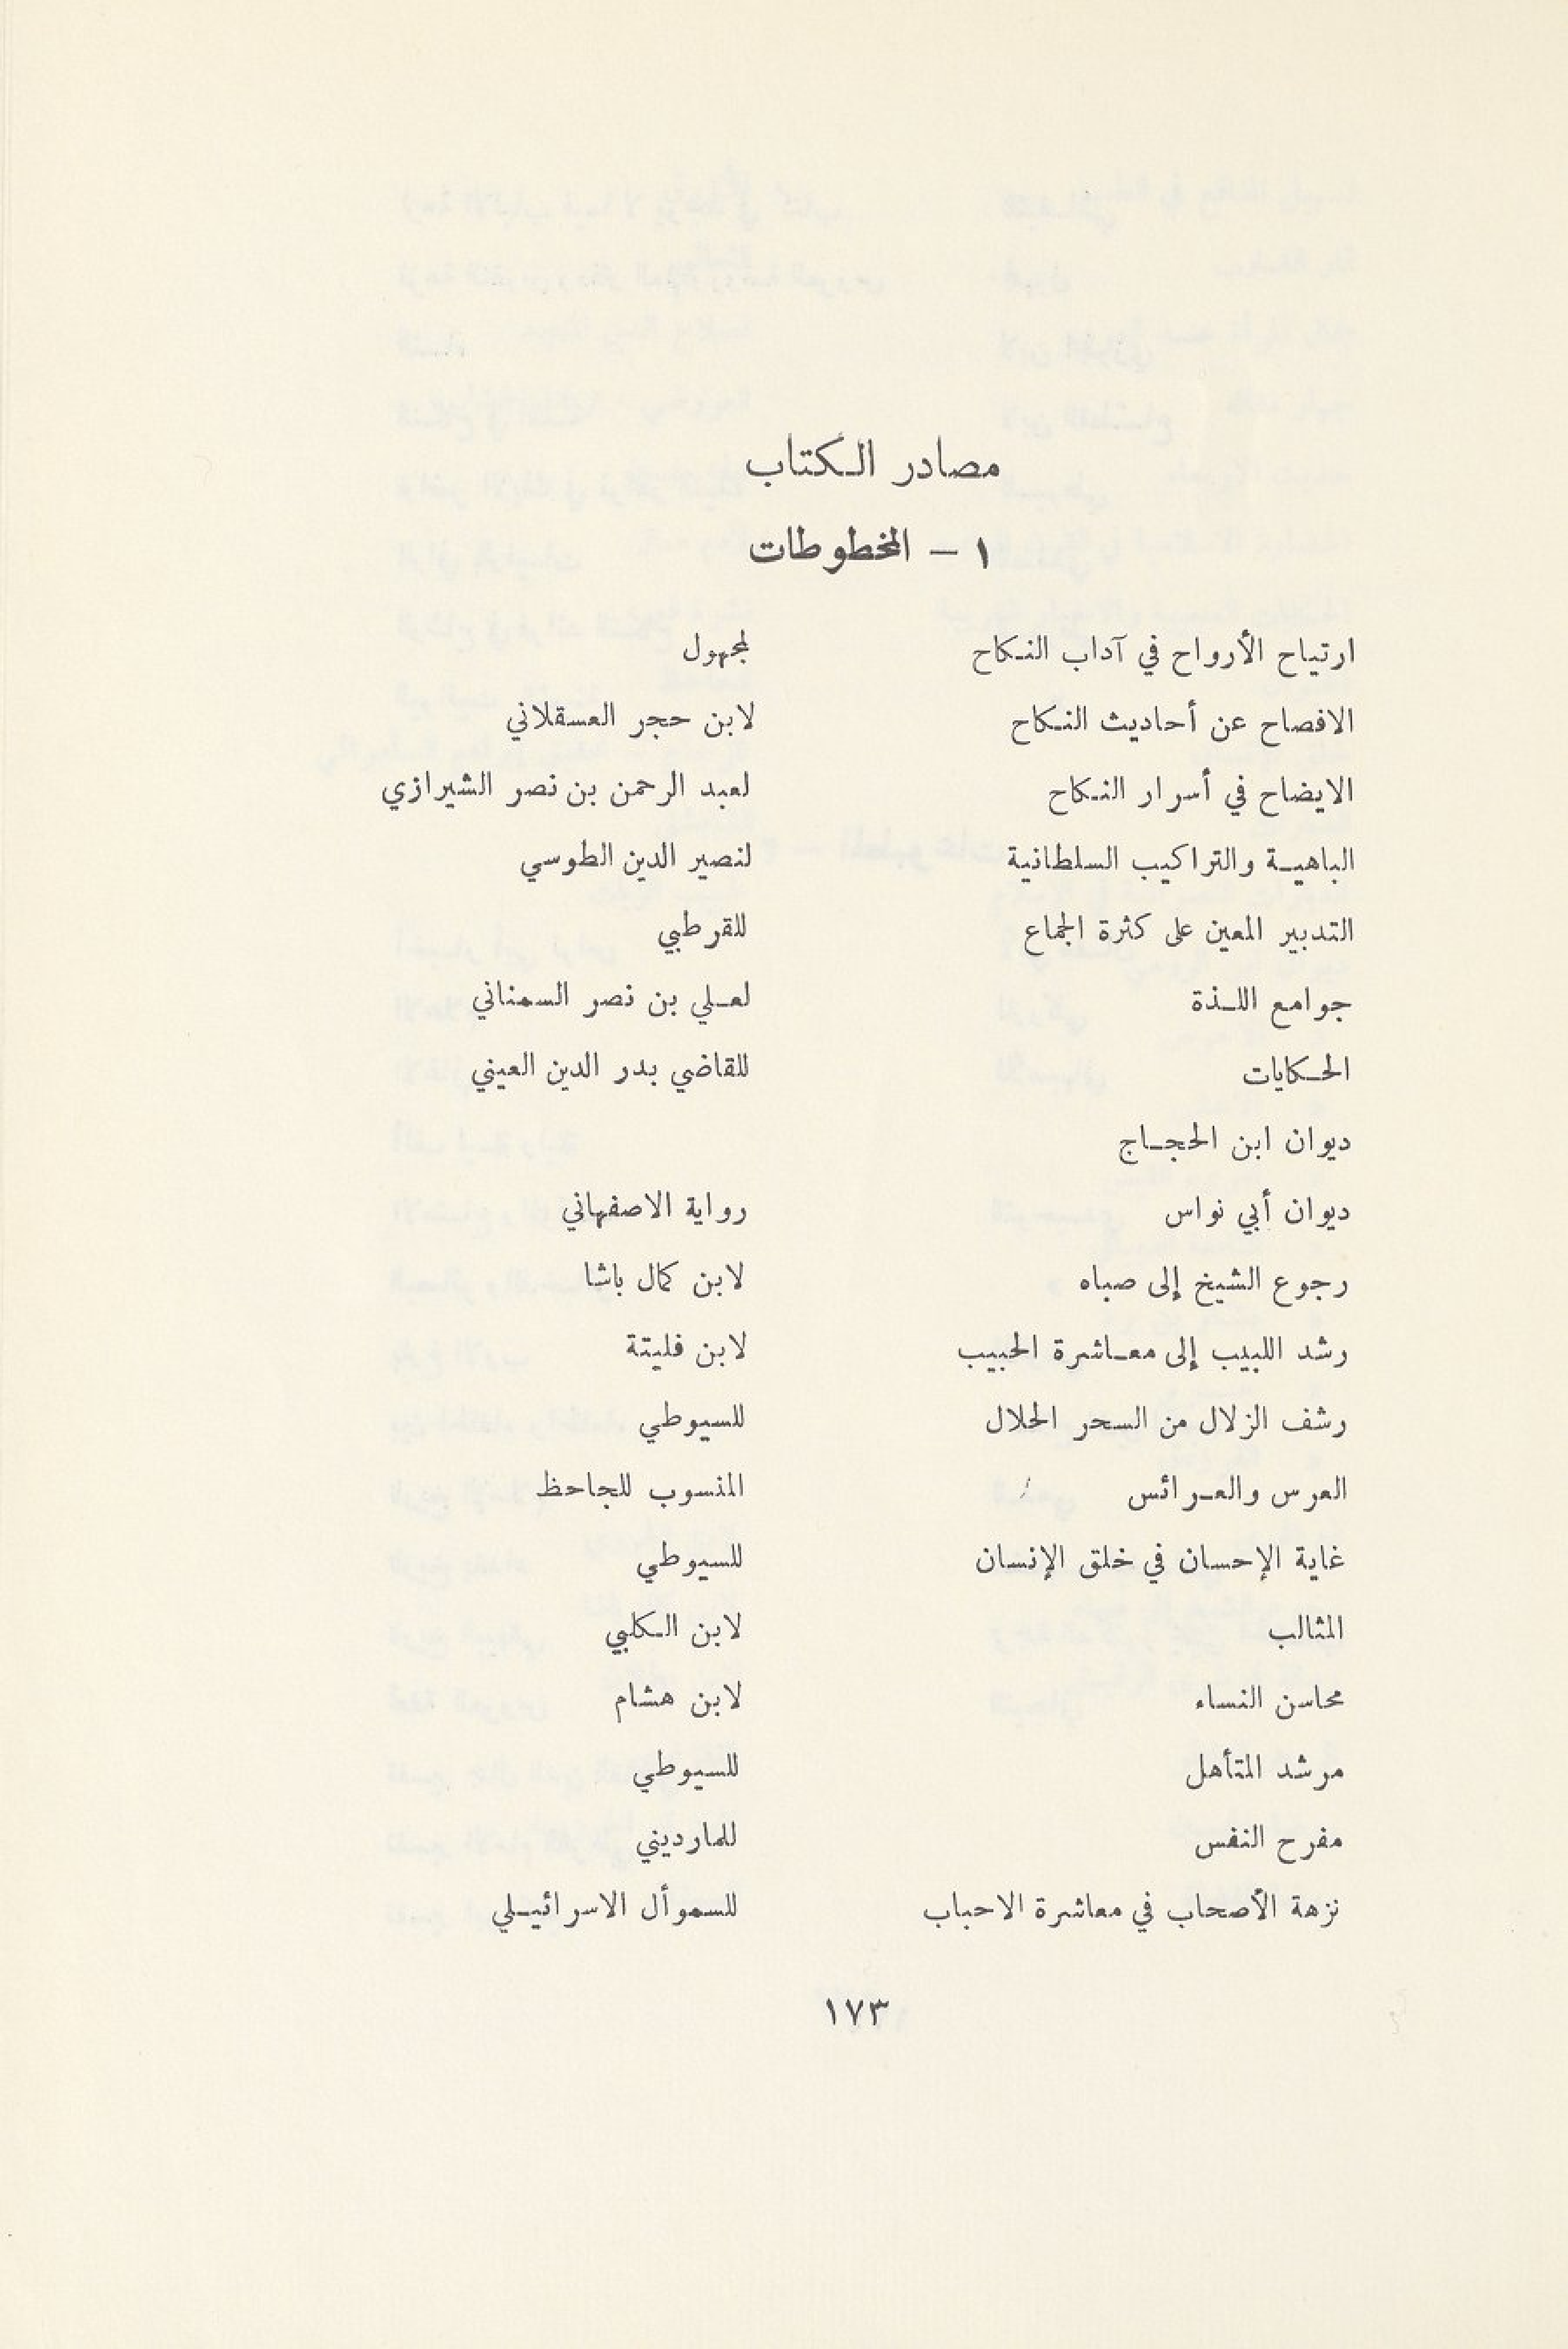 مصادر الكتاب
١ – المخطوطات
ارتياح الأرواح في آداب النكاح لمجهول
الافصاح عن أحاديث النكاح لابن حجر العسقلاني
الايضاح في أسرار النكاح لعبد الرحمن بن نصر الشيرازي
الباهية والتراكيب السلطانية لنصير الدين الطوسي
التدبير المعين على كثرة الجماع للقرطبي
جوامع اللذة لعلي بن نصر السمناني
الحكايات للقاضي بدر الدين العيني
ديوان ابن الحجاج
ديوان أبي نواس رواية الاصفهاني
رجوع الشيخ إلى صباه لابن كمال باشا
رشد اللبيب إلى معاشرة الحبيب لابن فليتة
رشف الزلال من السحر الحلال للسيوطي
العرس والعرائس المنسوب للجاحظ
غاية الإحسان في خلق الإنسان للسيوطي
المثالب لابن الكلبي
محاسن النساء لابن هشام
مرشد المتأهل للسيوطي
مفرح النفس للمارديني
نزهة الأصحاب في معاشرة الاحباب للسموأل الاسرائيلي
١٧٣